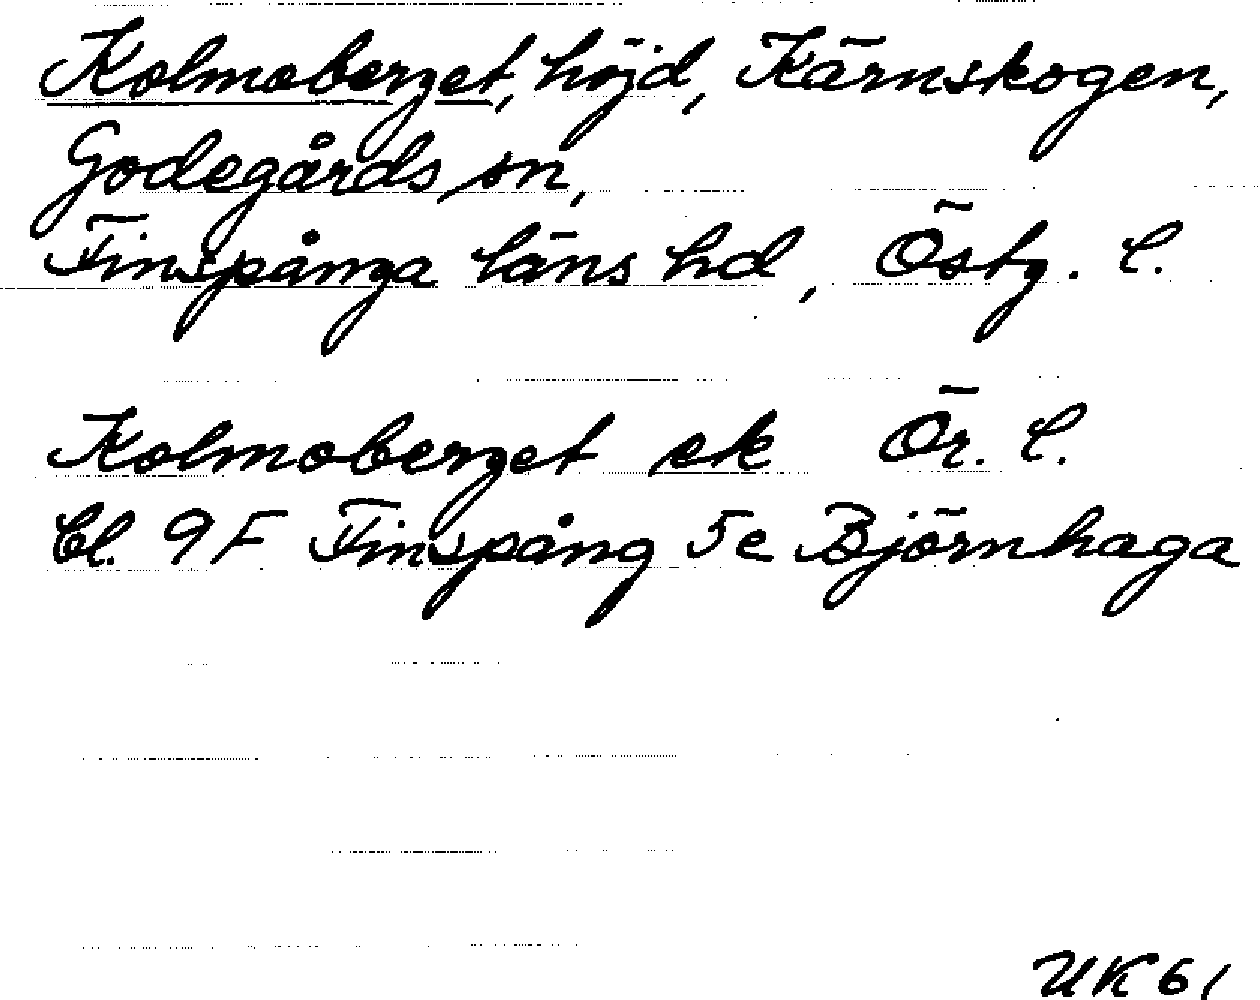 Kolmoberget, höjd, Kärnskogen,
Godegårds sn,
Finspånga läns hd, Östg. l.
Kolmoberget ek Ör. l.
Bl. 9F Finspång 5e Björnhaga
UK 61